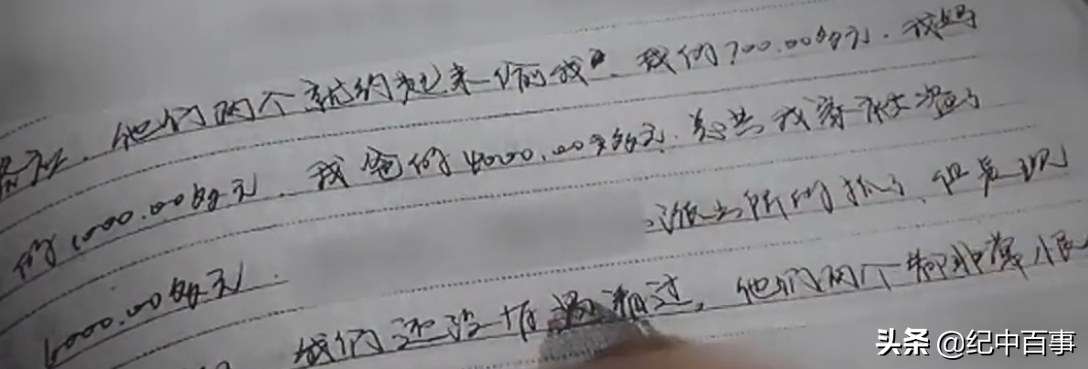 他们两个就约起来偷我、我的700.00多元.我妈
的1000.00多元、我爸的4000.00多元.总共我家被盗了
6000.00多元. 派出所的抓了,但是现
我们还没有 过,他们两个都非常恨
头条 @纪中百事